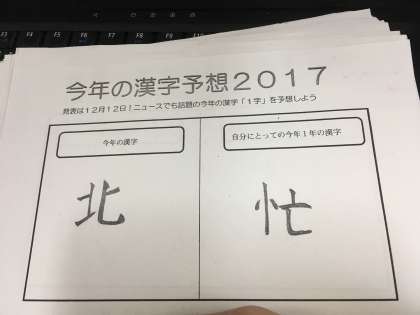 F3 F4 F5 F6 F7 F8 F9 F10
今年の漢字予想２０１７
発表は１２月１２日！ニュースでも話題の今年の漢字「１字」を予想しよう
今年の漢字
自分にとっての今年１年の漢字
北
忙